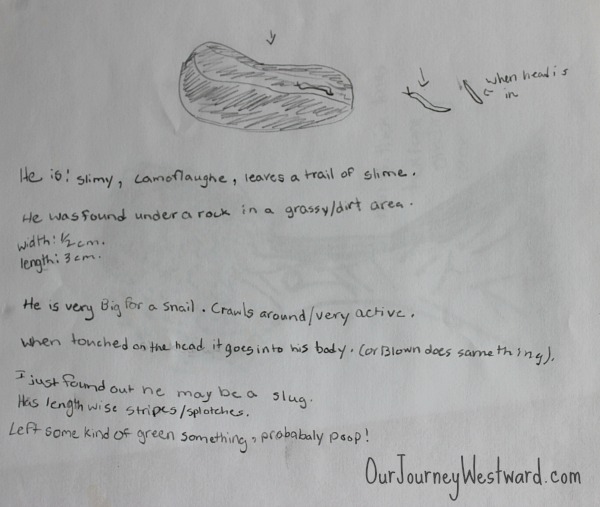 when head is
in
He is: slimy, camoflaughe, leaves a trail of slime.
He was found under a rock in a grassy/dirt area.
width: 1/2 cm.
length: 3 cm.
He is very Big for a snail. Crawls around/very active.
when touched on the head it goes into his body. (or Blown does same thing).
I just found out he may be a slug.
Has length wise stripes/splotches.
Left some kind of green something, probabaly poop!
OurJourneyWestward.com